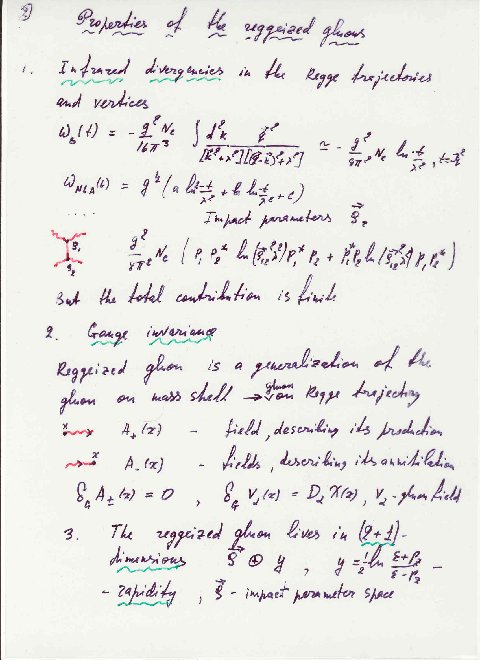 2)
Properties of the reggeized gluons
1. Infrared divergencies in the Regge trajectories
and vertices
ω_B(t) = - g²N_c/16π³ ∫ d²k q⃗² / ([k⃗²+λ²][(q-k)²+λ²]) ≃ - g²/8π² N_c ln -t/λ², t=-q⃗²
ω_NLA(t) = g⁴ (a ln² -t/λ² + b ln -t/λ² + c)
....
Impact parameters ρ⃗_r
ρ₁
ρ₂
g²/8π² N_c (P₁ P₂* ln(ρ⃗₁₂²λ²) P₁* P₂ + P₁* P₂ ln(ρ⃗₁₂²λ²) P₁ P₂*)
But the total contribution is finite
2. Gauge invariance
Reggeized gluon is a generalization of the
gluon on mass shell → on gluon Regge trajectory
x A₊(x) - field, describing its production
x A₋(x) - fields, describing its annihilation
δ_G A±(x) = 0 , δ_G V₂(x) = D₂ X(x), V₂ - gluon field
3. The reggeized gluon lives in (2+1)-
dimensions ρ⃗ ⊕ y , y = ½ ln (ε+P_z)/(ε-P_z) -
- rapidity , ρ⃗ - impact parameter space